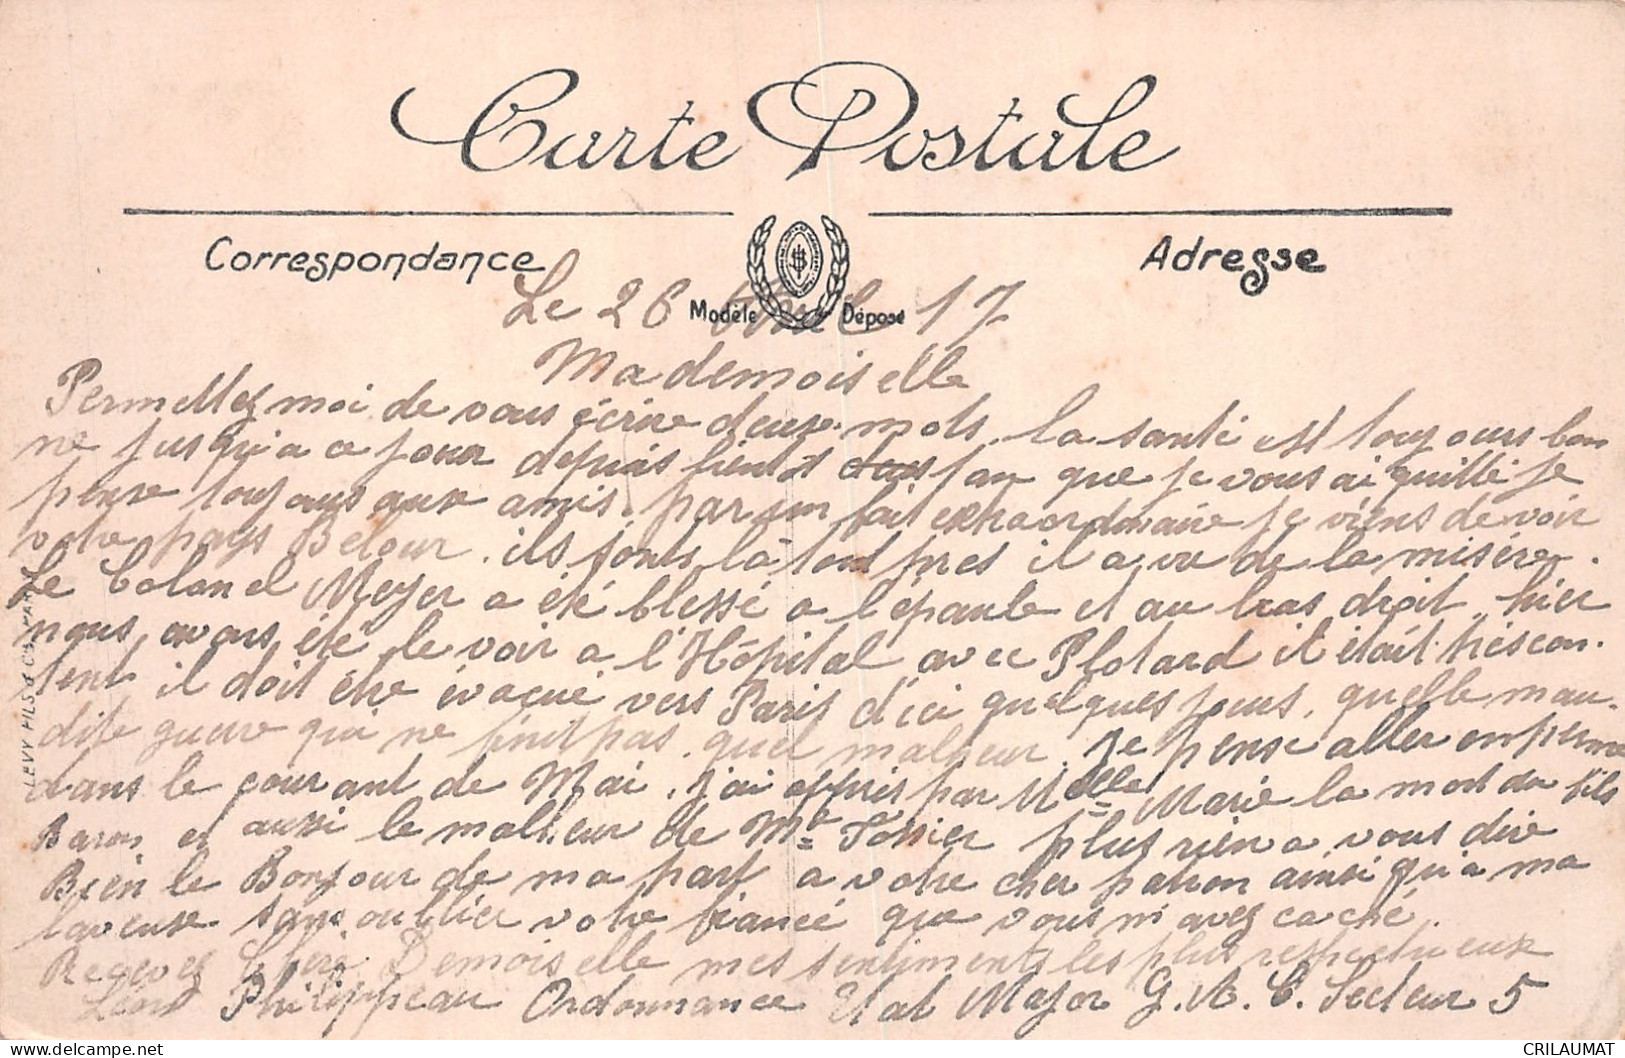 Carte Postale
Correspondance
Adresse
Modèle Déposé
Le 26 Avril 17
Mademoiselle
Permettez moi de vous écrire deux mots, la santé est toujours bon
ne jusqu'a ce jour depuis bientôt dans l'an que je vous ai quitté je
pense toujours aux amis. par un fait extraordinaire je viens de voir
votre pays Belour. ils sonts là tout pres il a vu de la misére.
Le Colonel Meyer a été blessé a l'épaule et au bras droit, hier
nous avons été le voir a l'Hôpital avec Plotard il était trés con.
tent il doit étre évacué vers Paris d'ici quelques jours, quelle mau.
dite guerre qui ne finit pas. quel malheur. Je pense aller en perme
dans le courant de Mai, j'ai appris par Melle Marie la mort du fils
Baron et aussi le malheur de Mr Tessier plus rien a vous dire
Bien le Bonjour de ma part a votre cher patron ainsi qu'a ma
laveuse sans oublier votre fiancé que vous m'avez caché.
Recevez Chére Demoiselle mes sentiments les plus respectueux
Léon Philippeau Ordonnance Etat Major G.A.C. Secteur 5
LEVY FILS & Cie PARIS
CRILAUMAT